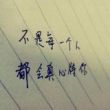 不是每一个人
都会真心陪你